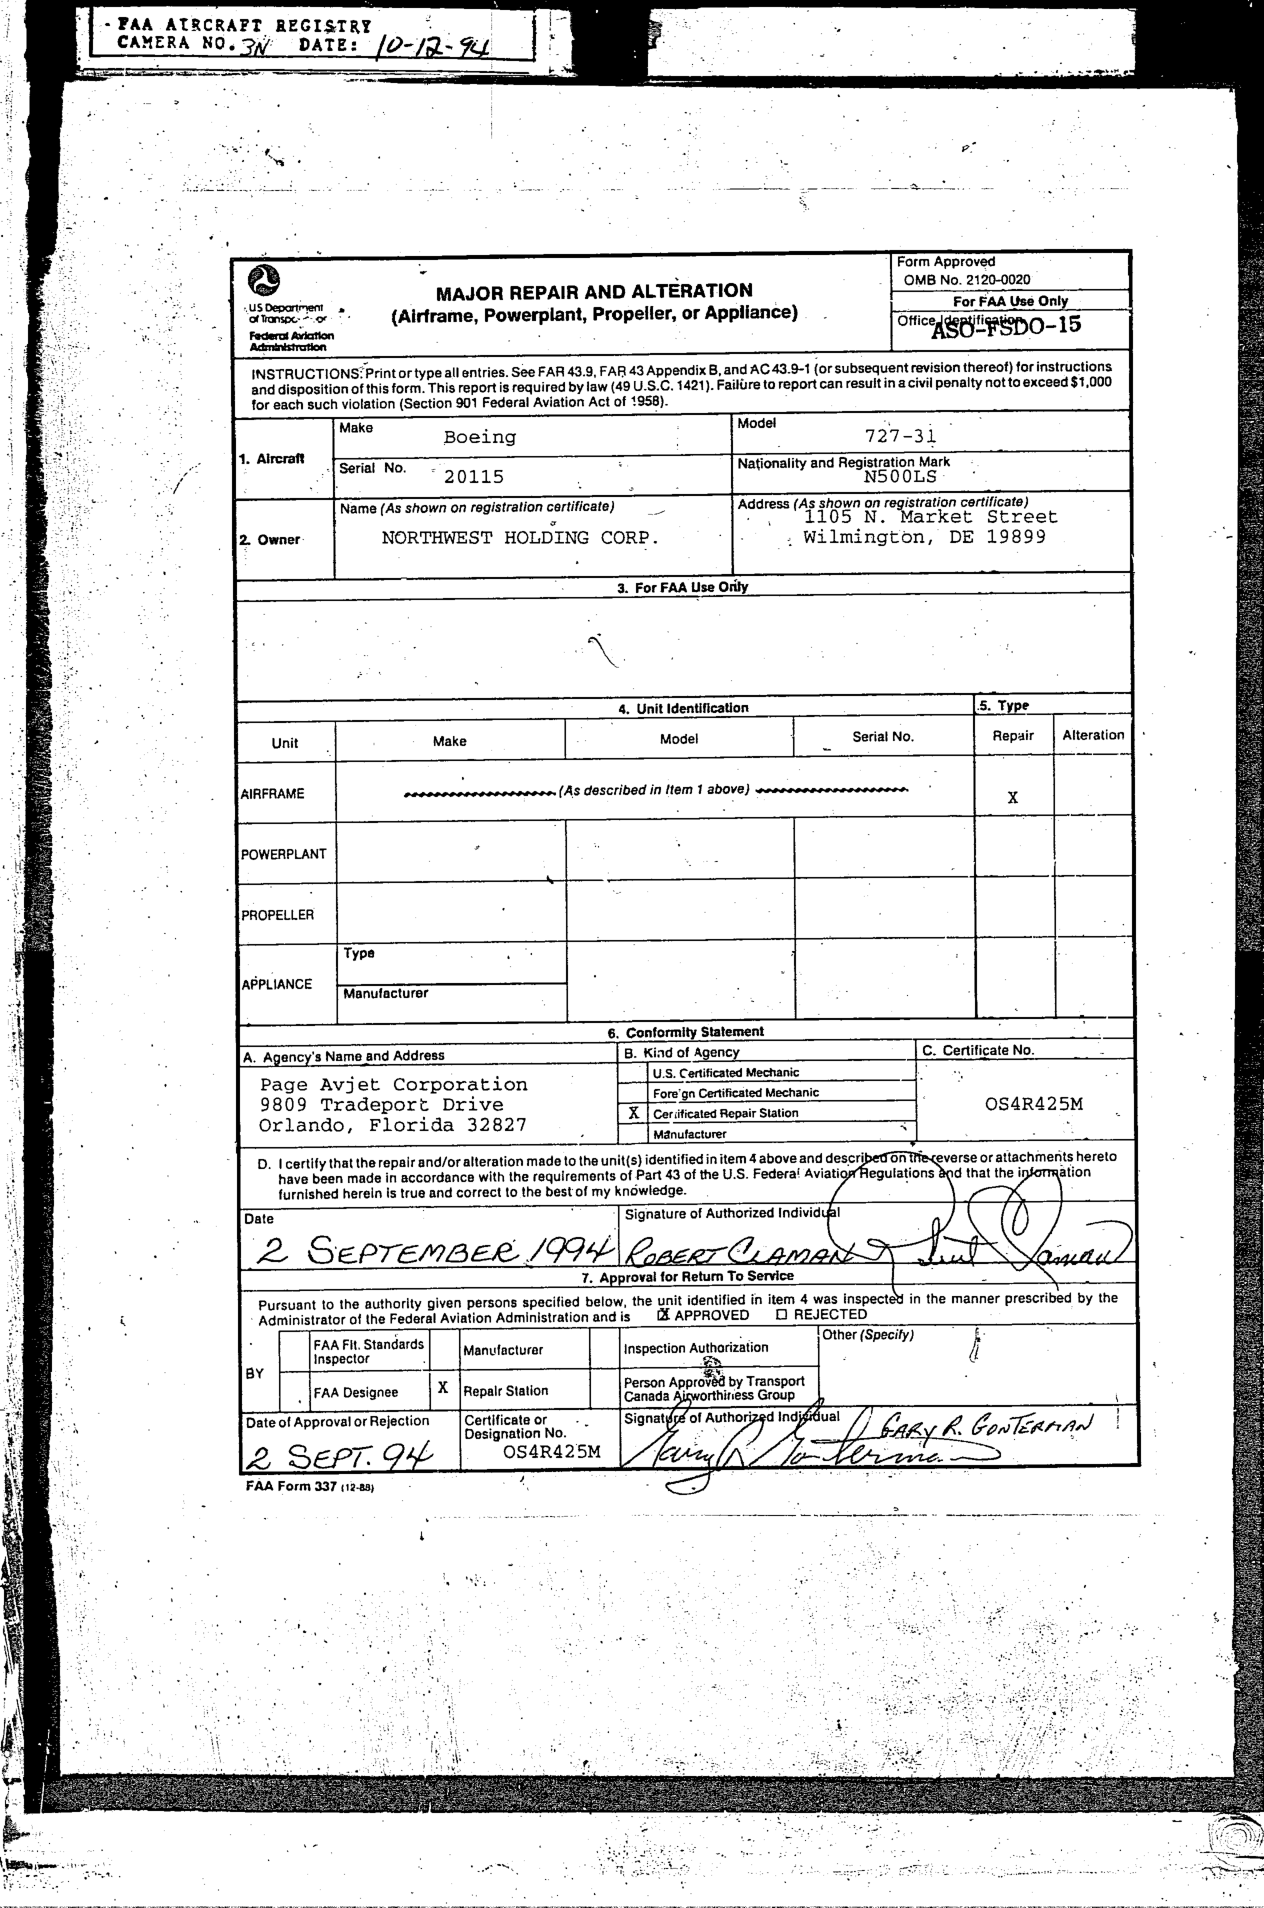 FAA AIRCRAFT REGISTRY
CAMERA NO. 3N DATE: 10-12-94
US Department
of Transpc
Federal Aviation
Administration
MAJOR REPAIR AND ALTERATION
(Airframe, Powerplant, Propeller, or Appliance)
Form Approved
OMB No. 2120-0020
For FAA Use Only
Office Identification
ASO-FSDO-15
INSTRUCTIONS: Print or type all entries. See FAR 43.9, FAR 43 Appendix B, and AC 43.9-1 (or subsequent revision thereof) for instructions
and disposition of this form. This report is required by law (49 U.S.C. 1421). Failure to report can result in a civil penalty not to exceed $1,000
for each such violation (Section 901 Federal Aviation Act of 1958).
1. Aircraft
Make
Boeing
Model
727-31
Serial No.
20115
Nationality and Registration Mark
N500LS
2. Owner
Name (As shown on registration certificate)
NORTHWEST HOLDING CORP.
Address (As shown on registration certificate)
1105 N. Market Street
Wilmington, DE 19899
3. For FAA Use Only
4. Unit Identification
5. Type
Unit Make Model Serial No. Repair Alteration
AIRFRAME (As described in Item 1 above) X
POWERPLANT
PROPELLER
APPLIANCE
Type
Manufacturer
6. Conformity Statement
A. Agency's Name and Address
Page Avjet Corporation
9809 Tradeport Drive
Orlando, Florida 32827
B. Kind of Agency
U.S. Certificated Mechanic
Foreign Certificated Mechanic
X Certificated Repair Station
Manufacturer
C. Certificate No.
OS4R425M
D. I certify that the repair and/or alteration made to the unit(s) identified in item 4 above and described on the reverse or attachments hereto
have been made in accordance with the requirements of Part 43 of the U.S. Federal Aviation Regulations and that the information
furnished herein is true and correct to the best of my knowledge.
Date
2 SEPTEMBER 1994
Signature of Authorized Individual
ROBERT CLAMAN Robert Claman
7. Approval for Return To Service
Pursuant to the authority given persons specified below, the unit identified in item 4 was inspected in the manner prescribed by the
Administrator of the Federal Aviation Administration and is X APPROVED REJECTED
BY
FAA Flt. Standards
Inspector
Manufacturer
Inspection Authorization
Other (Specify)
FAA Designee
X Repair Station
Person Approved by Transport
Canada Airworthiness Group
Date of Approval or Rejection
2 SEPT. 94
Certificate or
Designation No.
OS4R425M
Signature of Authorized Individual
GARY R. GONTERMAN
Gary R Gonterman
FAA Form 337 (12-88)